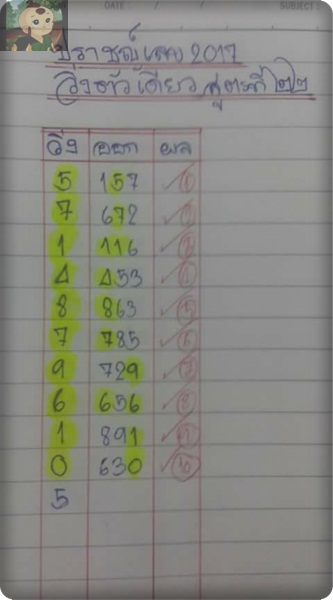 DATE / / SUBJECT:
ปราชญ์เลข 2017
วิ่งตัวเดียว สูตรที่ ๒๒
วิ่ง ออก ผล
5 157 ✓ 1
7 672 ✓ 2
1 116 ✓ 3
4 453 ✓ 4
8 863 ✓ 5
7 785 ✓ 6
9 729 ✓ 7
6 656 ✓ 8
1 891 ✓ 9
0 630 ✓ 10
5